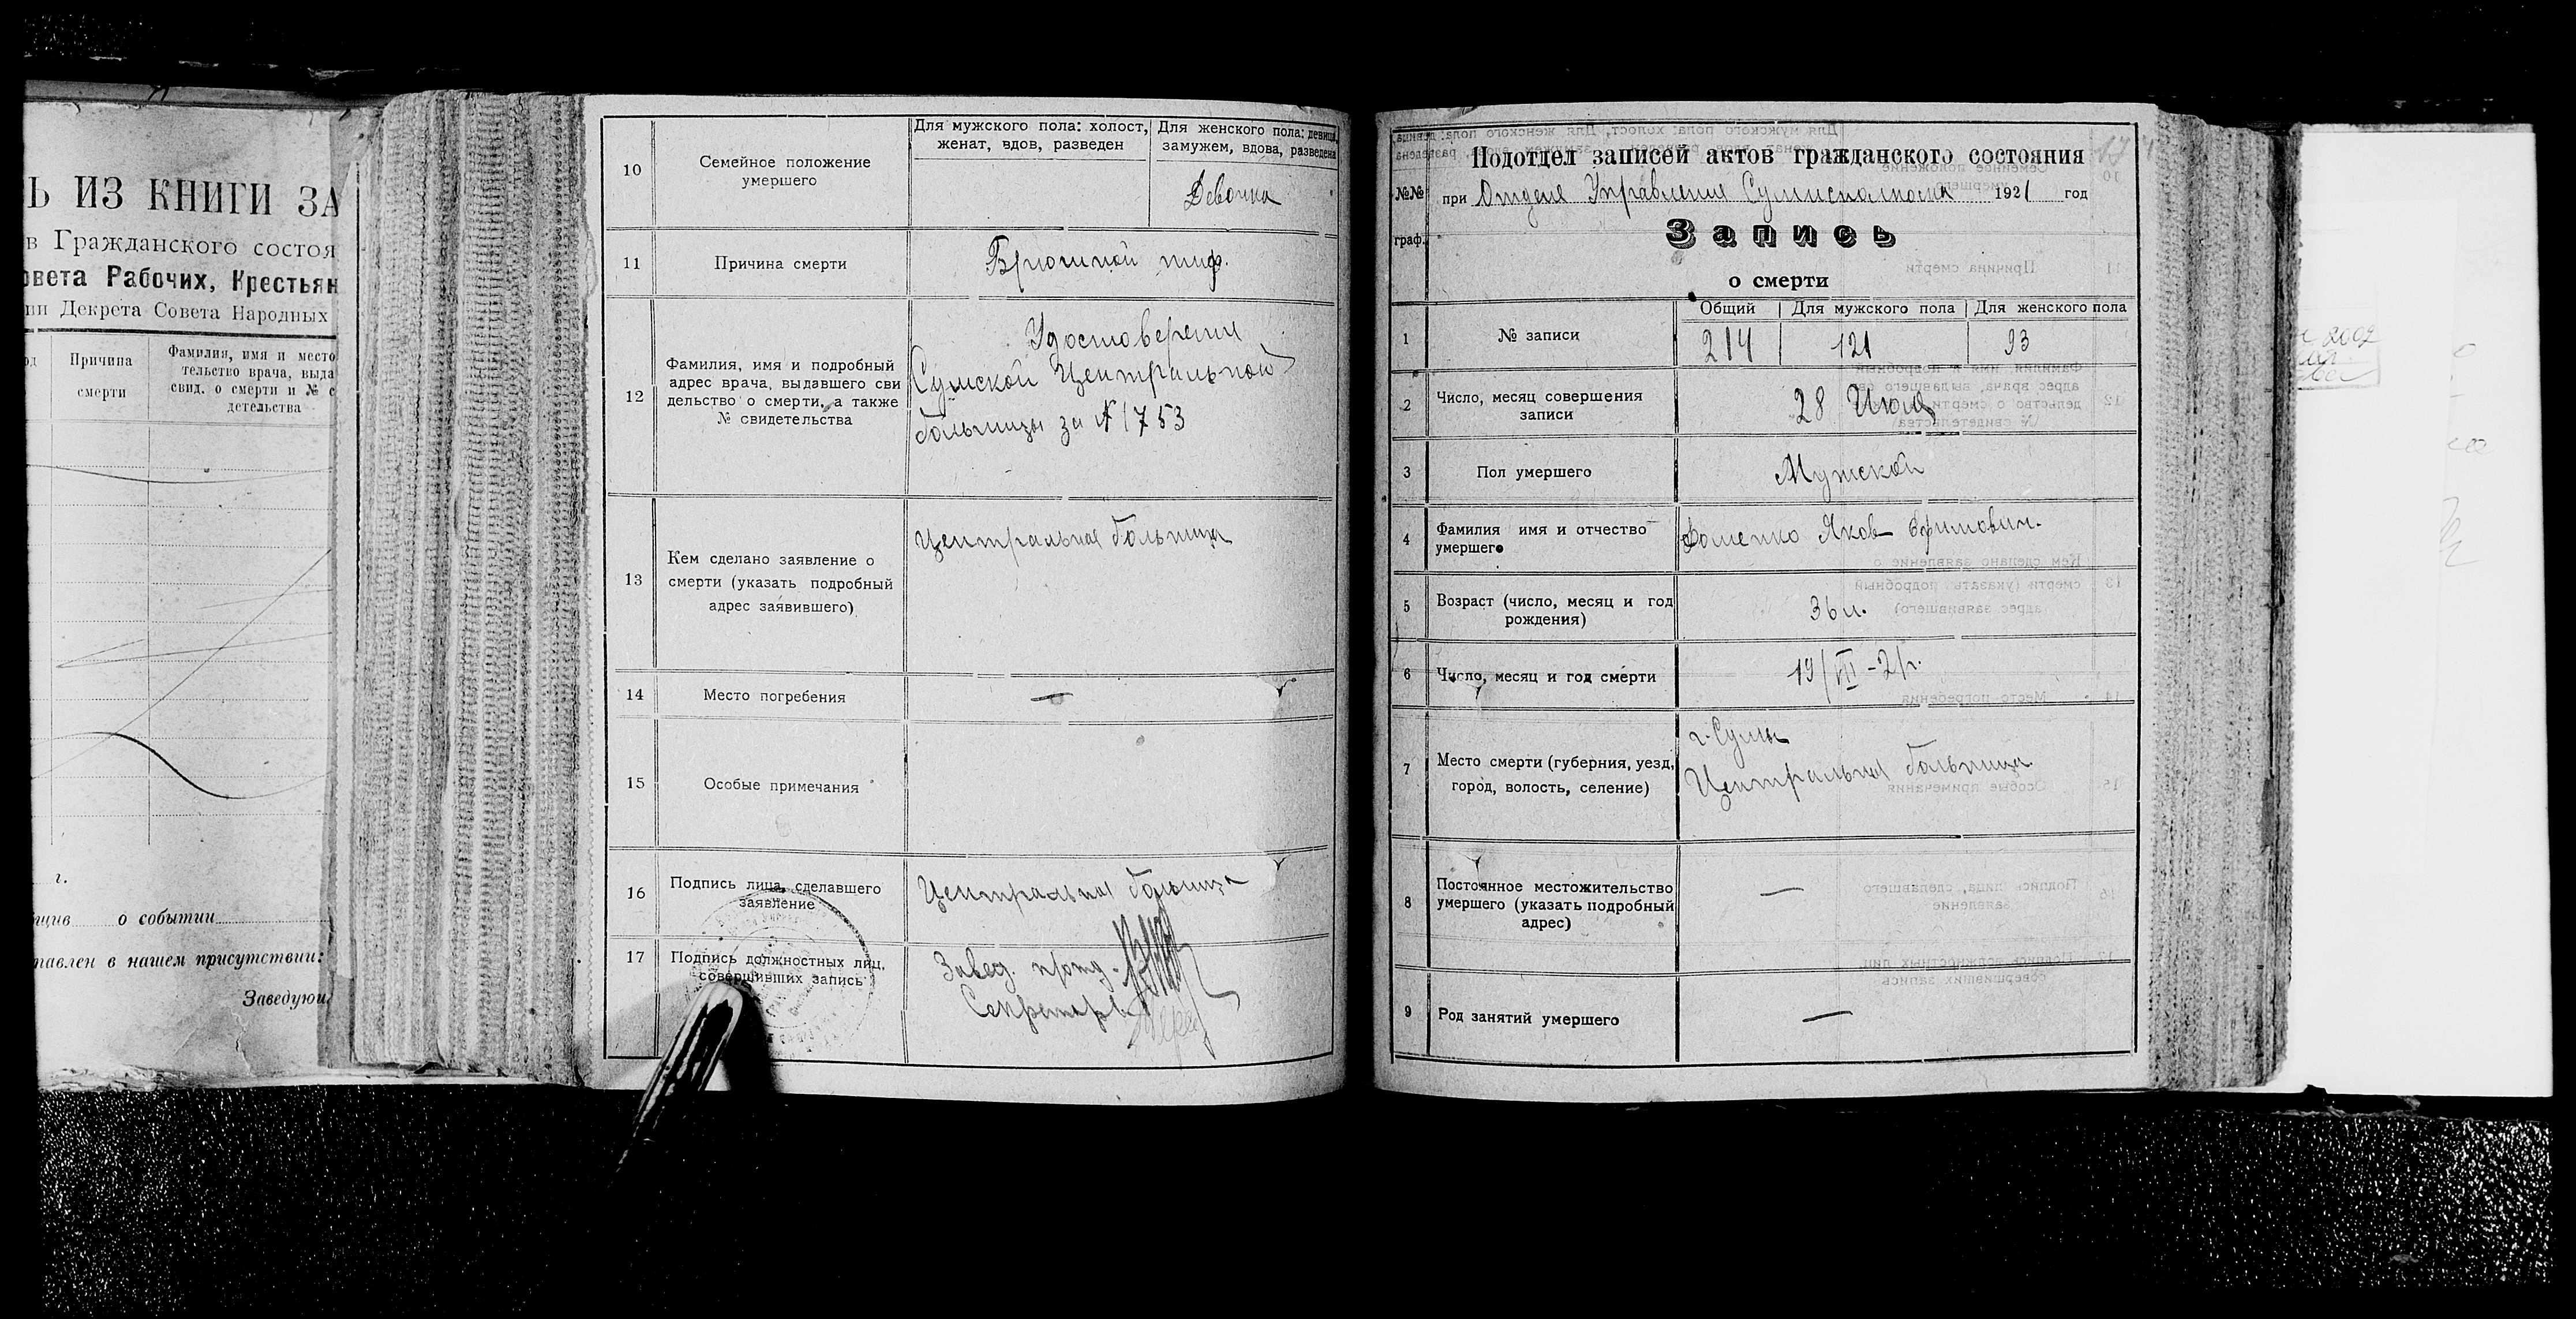 Ь ИЗ КНИГИ ЗА
в Гражданского состоя
овета Рабочих, Крестьян
ии Декрета Совета Народных
Причина
смерти
Фамилия, имя и место
тельство врача, выда
свид. о смерти и № с
детельства
г.
о событии
тавлен в нашем присутствии:
Заведующ
10
Семейное положение
умершего
Для мужского пола: холост,
женат, вдов, разведен
Для женского пола: девица,
замужем, вдова, разведена
Девочка
11
Причина смерти
Брюшной тиф.
12
Фамилия, имя и подробный
адрес врача, выдавшего сви
дельство о смерти, а также
№ свидетельства
Удостоверение
Сумской Центральной
больницы за № 1753
13
Кем сделано заявление о
смерти (указать подробный
адрес заявившего)
Центральная больница
14
Место погребения
—
15
Особые примечания
16
Подпись лица, сделавшего
заявление
Центральная больница
17
Подпись должностных лиц,
совершивших запись
Завед. п/отд.
Секретарь
Подотдел записей актов гражданского состояния
№№
граф.
при Отделе Управления Сумисполкома 1921 год
Запись
о смерти
1
№ записи
Общий
Для мужского пола
Для женского пола
214
121
93
2
Число, месяц совершения
записи
28 Июля
3
Пол умершего
Мужской
4
Фамилия имя и отчество
умершего
Фоменко Яков Ефимович.
5
Возраст (число, месяц и год
рождения)
36 л.
6
Число, месяц и год смерти
19/VII-21г.
7
Место смерти (губерния, уезд,
город, волость, селение)
г. Сумы
Центральная больница
8
Постоянное местожительство
умершего (указать подробный
адрес)
—
9
Род занятий умершего
—